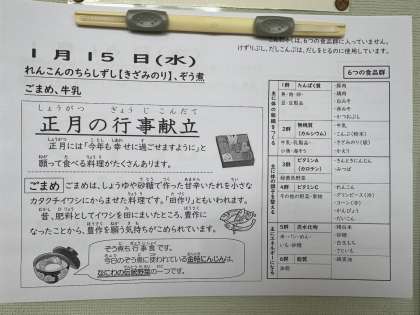 1月15日(水)
れんこんのちらしずし【きざみのり】、ぞう煮
ごまめ、牛乳
しょうがつ ぎょうじ こんだて
正月の行事献立
正月には「今年も幸せに過ごせますように」と
願って食べる料理がたくさんあります。
ごまめ ごまめは、しょうゆや砂糖で作った甘辛いたれを小さな
カタクチイワシにからませた料理です。「田作り」ともいわれます。
昔、肥料としてイワシを田にまいたところ、豊作に
なったことから、豊作を願う気持ちがこめられています。
ぞう煮も行事食です。
今日のぞう煮に使われている金時にんじんは、
なにわの伝統野菜の一つです。
、6つの食品群に入っていません。
けずりぶし、だしこんぶは、だしをとるのに使用しています。
6つの食品群
主に体の組織をつくる
1群 たんぱく質
魚・肉・卵・
豆・豆製品
・豚肉
・鶏肉
2群 無機質
(カルシウム)
牛乳・乳製品・
・牛乳
・こんぶ(粉末)
・きざみのり
主に体の調子を整える
3群 ビタミンA
(カロテン)
緑黄色野菜
・きんときにんじん
・みつば
4群 ビタミンC
その他の野菜・果物
・れんこん
・グリンピース(冷)
・コーン(冷)
・かんぴょう
・だいこん
主にエネルギーになる
5群 炭水化物
米・パン・めん・
いも・砂糖
・精白米
・砂糖
・白玉もち
・さといも
6群 脂質
油脂
・綿実油